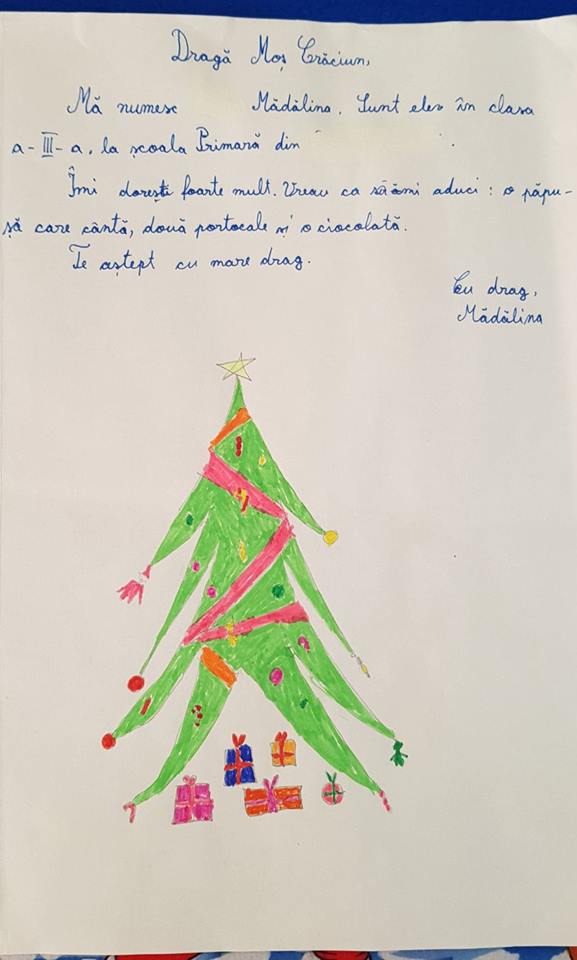 Dragă Moș Crăciun,
Mă numesc Mădălina. Sunt elev în clasa
a-III-a, la școala Primară din
Îmi doresti foarte mult. Vreau ca să-mi aduci: o păpu-
șă care cântă, două portocale și o ciocolată.
Te aștept cu mare drag.
Cu drag,
Mădălina